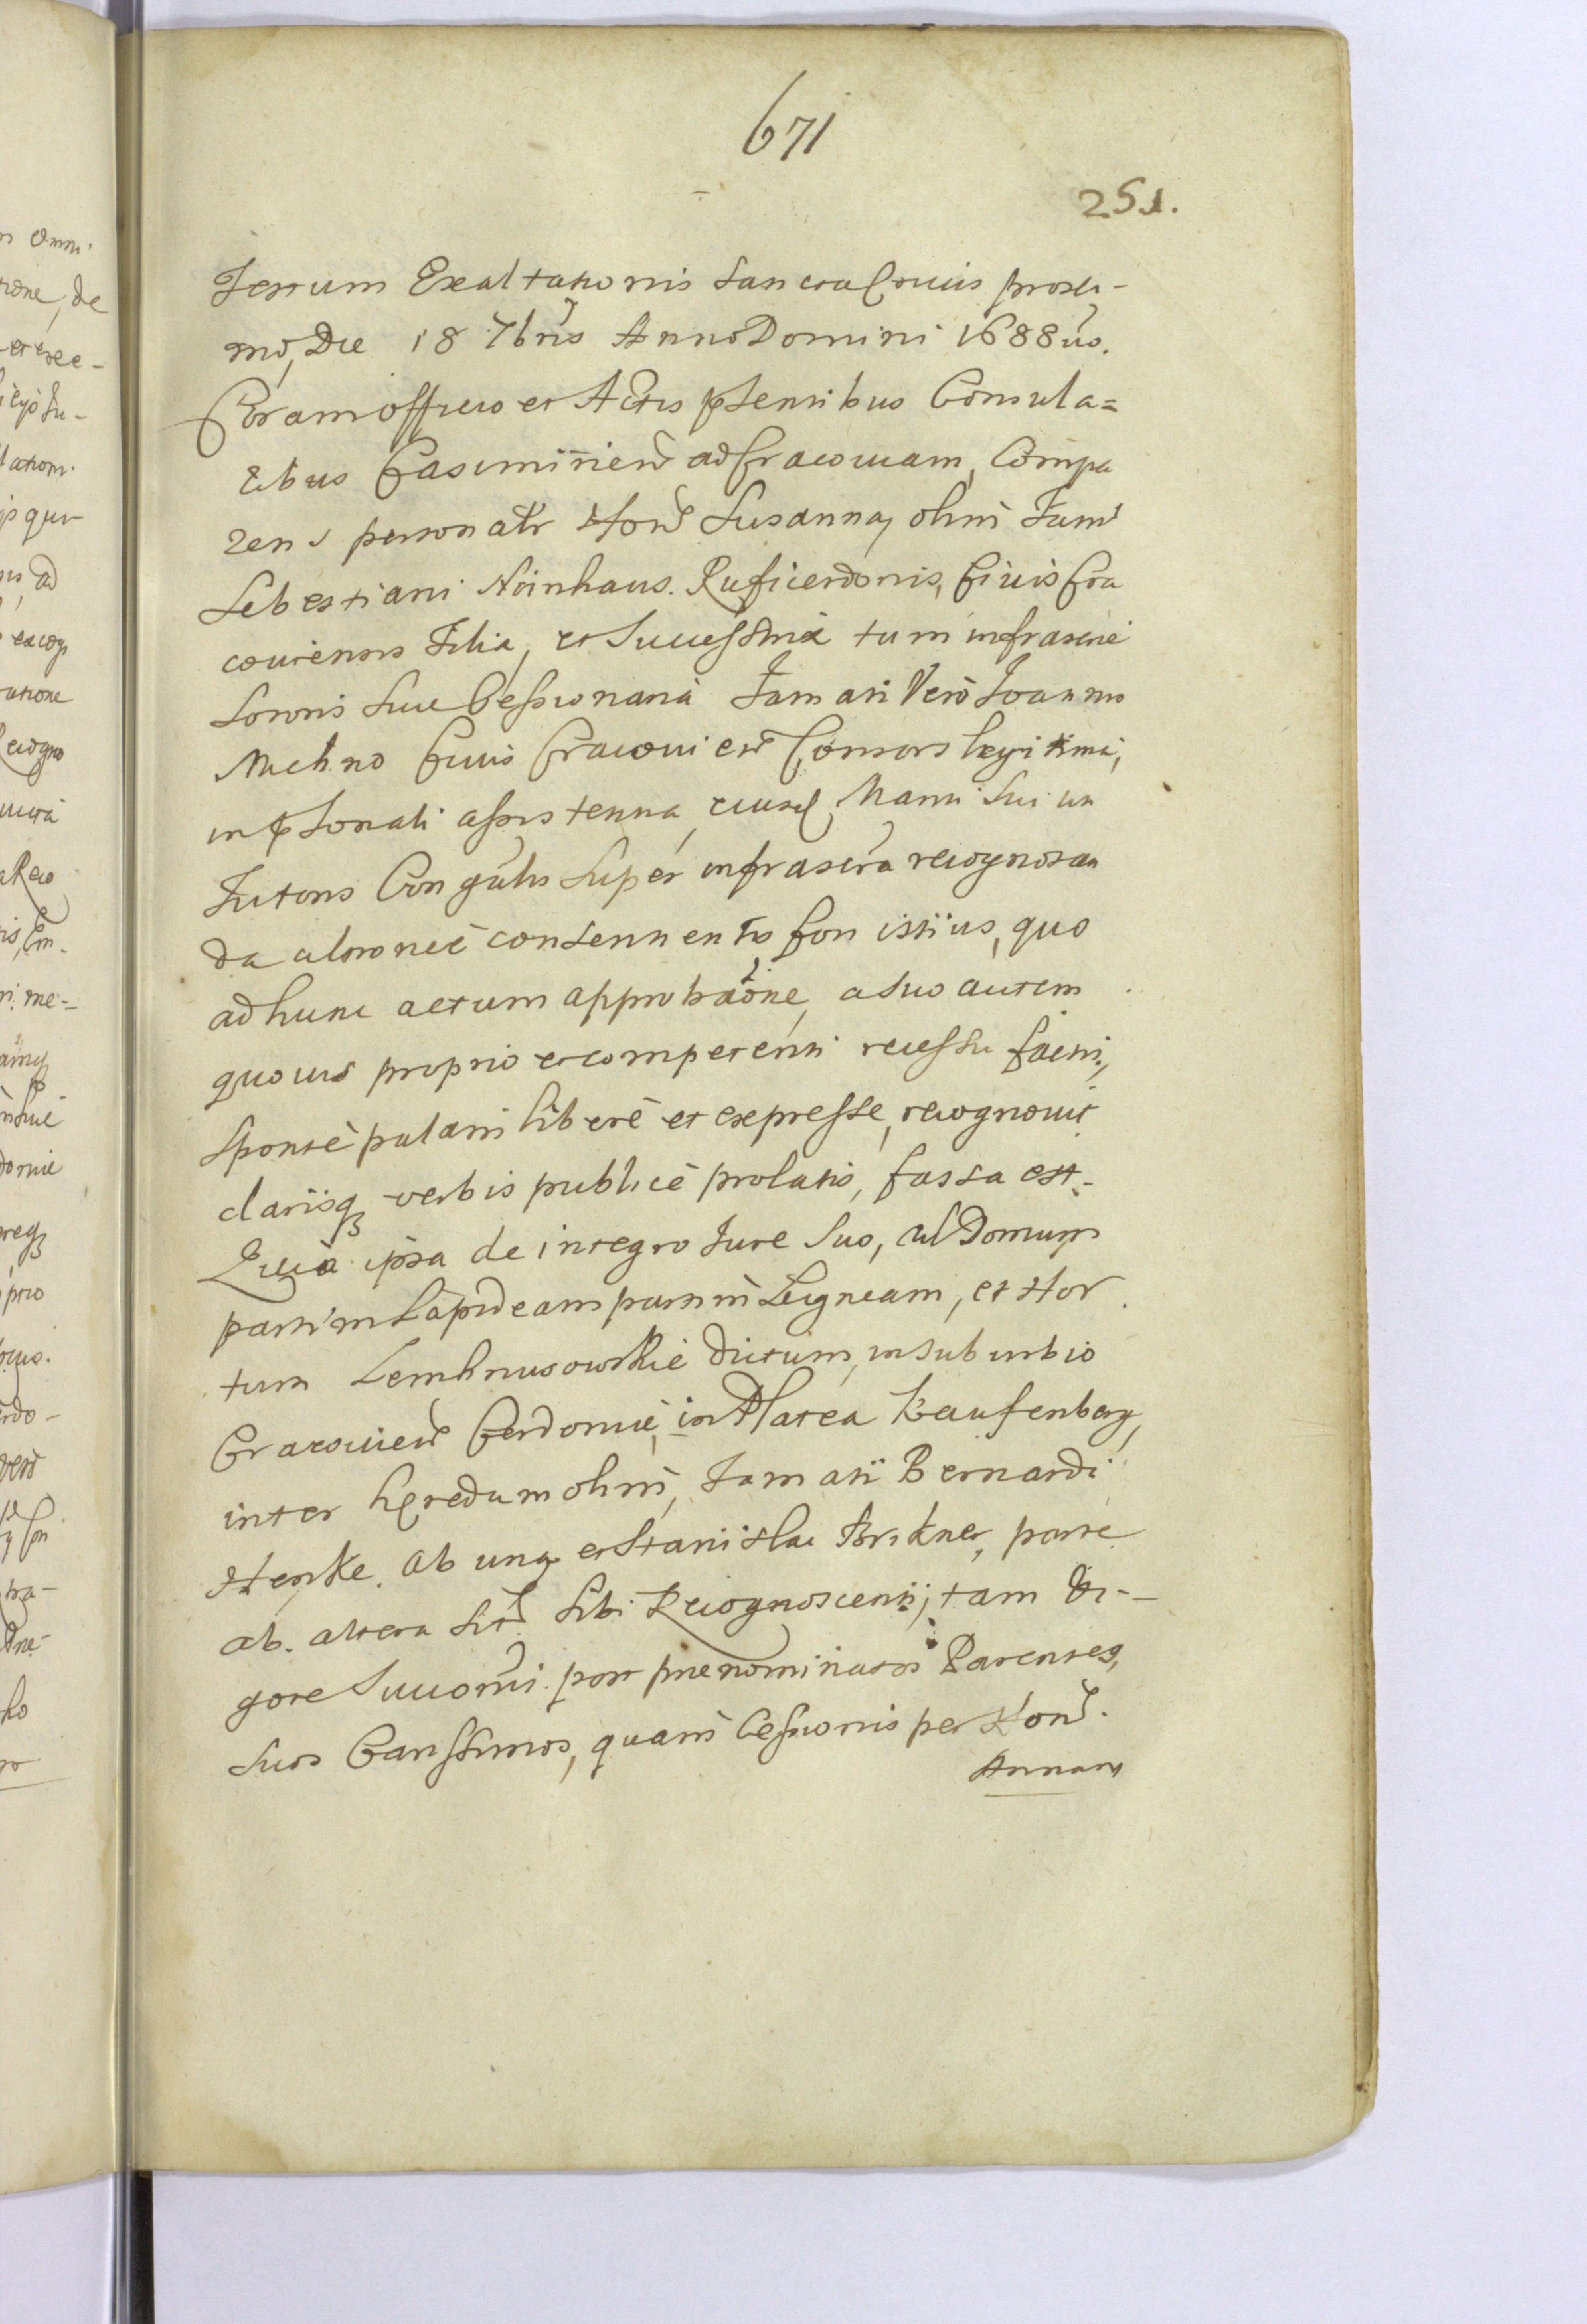 671
251.
Festum Exaltationis Sanctae Crucis proxi-
mo, Die 18 7bris Anno Domini 1688vo.
Coram officio et Actis pñtibus Consula=
ribus Casimirien̄ ad Cracoviam, Compa
rens personalr Hon̄ Susanna, olim Fam̄
Sebestiani Noinhaus. Ruficerdonis, Civis Cra
coviensis Filia, et Successrix tum infrascrie
Sororis Sue Cessionaria Famati Vero Joannis
Michno Civis Cracovien̄ Consors legitima,
in psonali assistentia, eiusd, Mariti Sui ut
Tutoris Congulis Super infrascra recognoscen
da a loro nec consentientis Con istius, quo
ad hunc actum approbaōne, a Suo autem
quovis proprio et competenti recessu facti,
Sponte palam libere et expresse, recognovit
clarisq verbis publice prolatis, fassa est.
Quia ipsa de integro Jure Suo, ad Domum
partim Lapideam partim Ligneam, et Hor
tum Lemhnusowskie dictum, in suburbio
Cracovien̄ Cerdonie, in Platea Kaufenberg,
inter heredum olim, Famati Bernardi
Henke. ab una et Stanislai Brikner, parte
ab. altera Sit̄ Sibi Recognoscenti, tam Vi-
gore Successionis. post prenominatos Parentes,
Suos Carissimos, quam Cessionis per Hon̄.
Annam